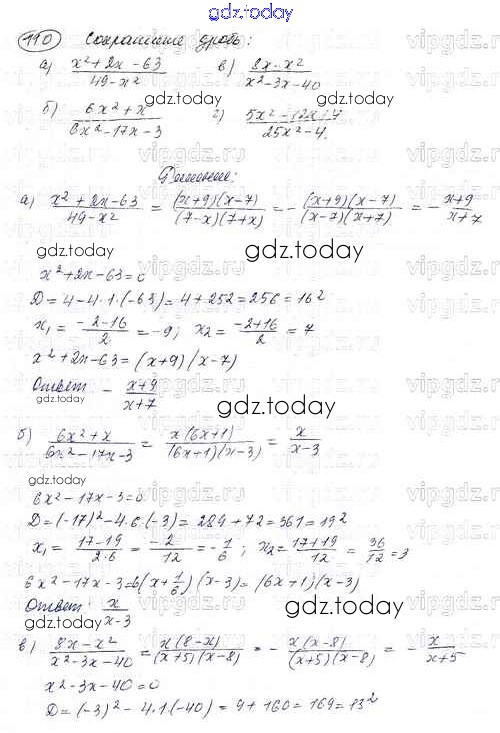 gdz.today
110 Сократите дробь:
а) (x²+2x-63)/(49-x²) в) (8x-x²)/(x²-3x-40)
б) (6x²+x)/(6x²-17x-3) г) /(25x²-4)
gdz.today gdz.today
Решение:
а) (x²+2x-63)/(49-x²) = ((x+9)(x-7))/((7-x)(7+x)) = -((x+9)(x-7))/((x-7)(x+7)) = -(x+9)/(x+7)
gdz.today
x²+2x-63=0
D=4-4·1·(-63)=4+252=256=16²
x₁=(-2-16)/2=-9; x₂=(-2+16)/2=7
x²+2x-63=(x+9)(x-7)
Ответ -(x+9)/(x+7)
gdz.today gdz.today
б) (6x²+x)/(6x²-17x-3) = (x(6x+1))/((6x+1)(x-3)) = x/(x-3)
gdz.today
6x²-17x-3=0
D=(-17)²-4·6·(-3)=289+72=361=19²
x₁=(17-19)/(2·6)=(-2)/12=-1/6; x₂=(17+19)/12=36/12=3
6x²-17x-3=6(x+1/6)(x-3)=(6x+1)(x-3)
Ответ x/(x-3)
gdz.today gdz.today
в) (8x-x²)/(x²-3x-40)=(x(8-x))/((x+5)(x-8))=-(x(x-8))/((x+5)(x-8))=-x/(x+5)
x²-3x-40=0
gdz.today
D=(-3)²-4·1·(-40)=9+160=169=13²